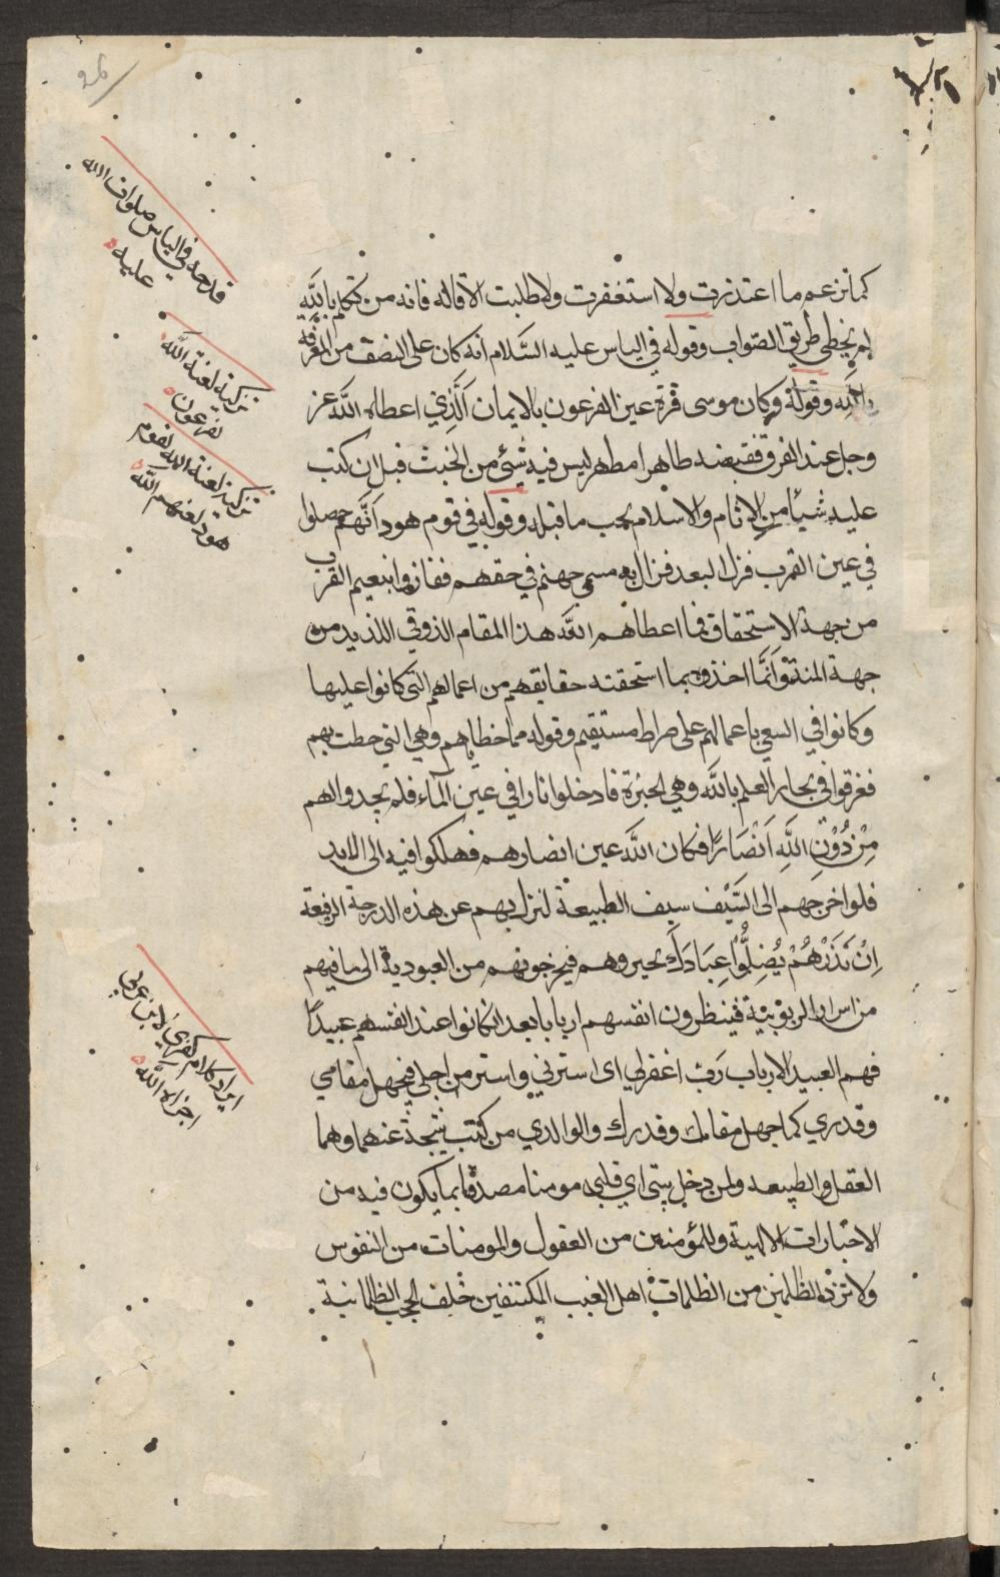 كما نزعم ما اعتذرت ولا استغفرت ولا طلبت الاقاله فانه من تكلم بالله
لم يخطي طريق الصواب وقوله في الياس عليه السّلام انه كان على النصف من المعرفة
بالله وقوله وكان موسى قرة عين لفرعون بالايمان الَّذِي اعطاه الله عز
وجل عند الغرق فقبضه طاهرا مطهرا ليس فيه شئي من الخبث قبل ان كتب
عليه شيأ من الاثام والاسلام يجب ما قبله وقوله في قوم هود انّهم حصلوا
في عين القرب فزال البعد فزال به مسمى جهنم في حقهم ففازوا بنعيم القرب
من جهة الاستحقاق فما اعطاهم الله هذا المقام الذوقي اللذيذ من
جهة المنة وانَّما اخذوه بما استحقته حقايقهم من اعمالهم التي كانوا عليها
وكانوا في السعي باعمالهم على صراط مستقيم وقوله مما خطاياهم وهي التي خطت بهم
فغرقوا في بحار العلم بالله وهي الحيرة فادخلوا نارا في عين المآء فلم يجدوا لهم
مِنْ دُوْنِ اللَّهِ اَنْصَارًا فكان اللَّه عين انصارهم فهلكوا فيه الى الابد
فلو اخرجهم الى السَّيْف سيف الطبيعة لنزل بهم عن هذه الدرجة الرفيعة
اِنْ تَذَرْهُمْ يُضِلُّوْا عِبَادَكَ يحيروهم فيخرجونهم من العبودية الى ما فيهم
من اسرار الربوبيّة فينظرون انفسهم اربابا بعد ان كانوا عند انفسهم عبيدًا
فهم العبيد الارباب رَبِّ اغفر لي اى استرني واستر من اجلي فيجهل مقامي
وقدري كما جهل مقامك وقدرك ولوالدي من كنت نتيجة عنهما وهما
العقل والطبيعه ولمن دخل بيتي اي قلبي مومنا مصدقا بما يكون فيه من
الاخبارات الالهية وللمؤمنين من العقول والمومنات من النفوس
ولا تزد الظلمين من الظلمات اهل الغيب المكتنفين خلف الحجب الظلمانية
قدحه في الياس صلوات الله
عليه
تزكية لعنة اللَّه
لفرعون
تزكية لعنة الله لقوم
هود لعنهم اللَّه
ايراد كلام كفري لابن عربي
اخزاه اللَّه